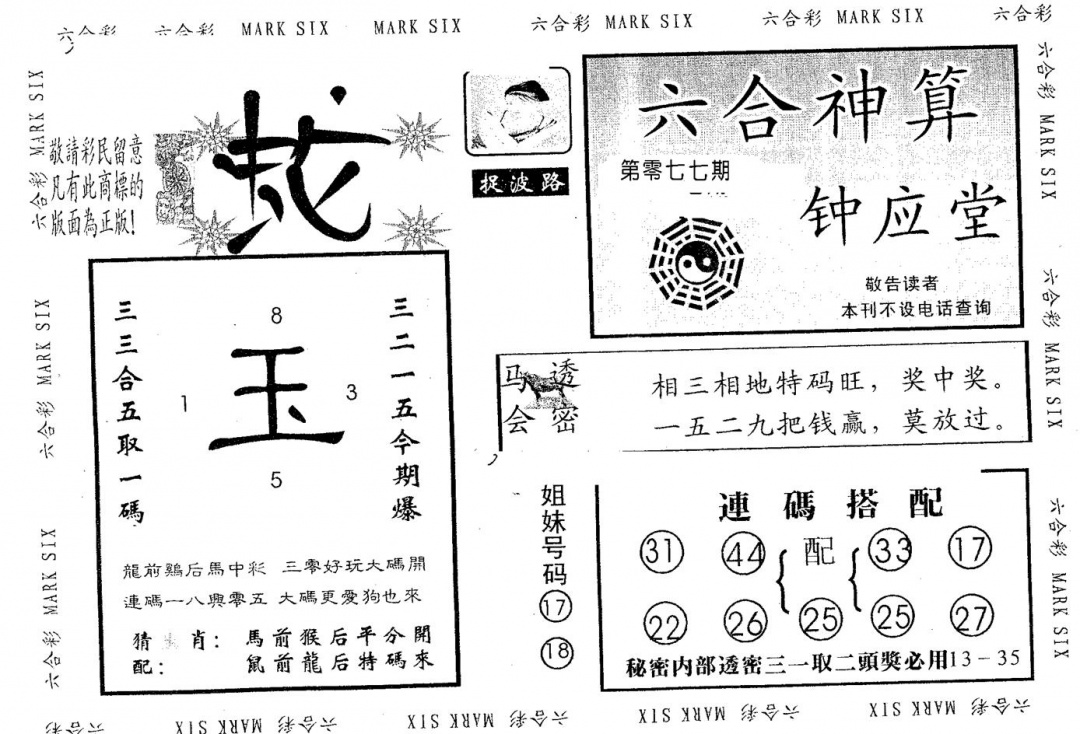 六合彩 六合彩 MARK SIX MARK SIX 六合彩 MARK SIX 六合彩 MARK SIX 六合彩
六合彩 MARK SIX
敬請彩民留意
凡有此商標的
版面為正版!
捉波路
六合神算
第零七七期
钟应堂
敬告读者
本刊不设电话查询
六合彩 MARK SIX
六合彩 MARK SIX
六合彩 MARK SIX
三三合五取一碼
8
1
玉
3
5
三二一五今期爆
龍前鷄后馬中彩 三零好玩大碼開
連碼一八興零五 大碼更愛狗也來
猜 肖: 馬前猴后平分開
配: 鼠前龍后特碼來
马会
透密
相三相地特码旺,奖中奖。
一五二九把钱赢,莫放过。
姐妹号码
17
18
連碼搭配
31 44 配 33 17
22 26 25 25 27
秘密内部透密三一取二頭獎必用13-35
六合彩 MARK SIX
六合彩 MARK SIX
六合彩 MARK SIX
六合彩 MARK SIX 六合彩 MARK SIX 六合彩 MARK SIX 六合彩 MARK SIX 六合彩